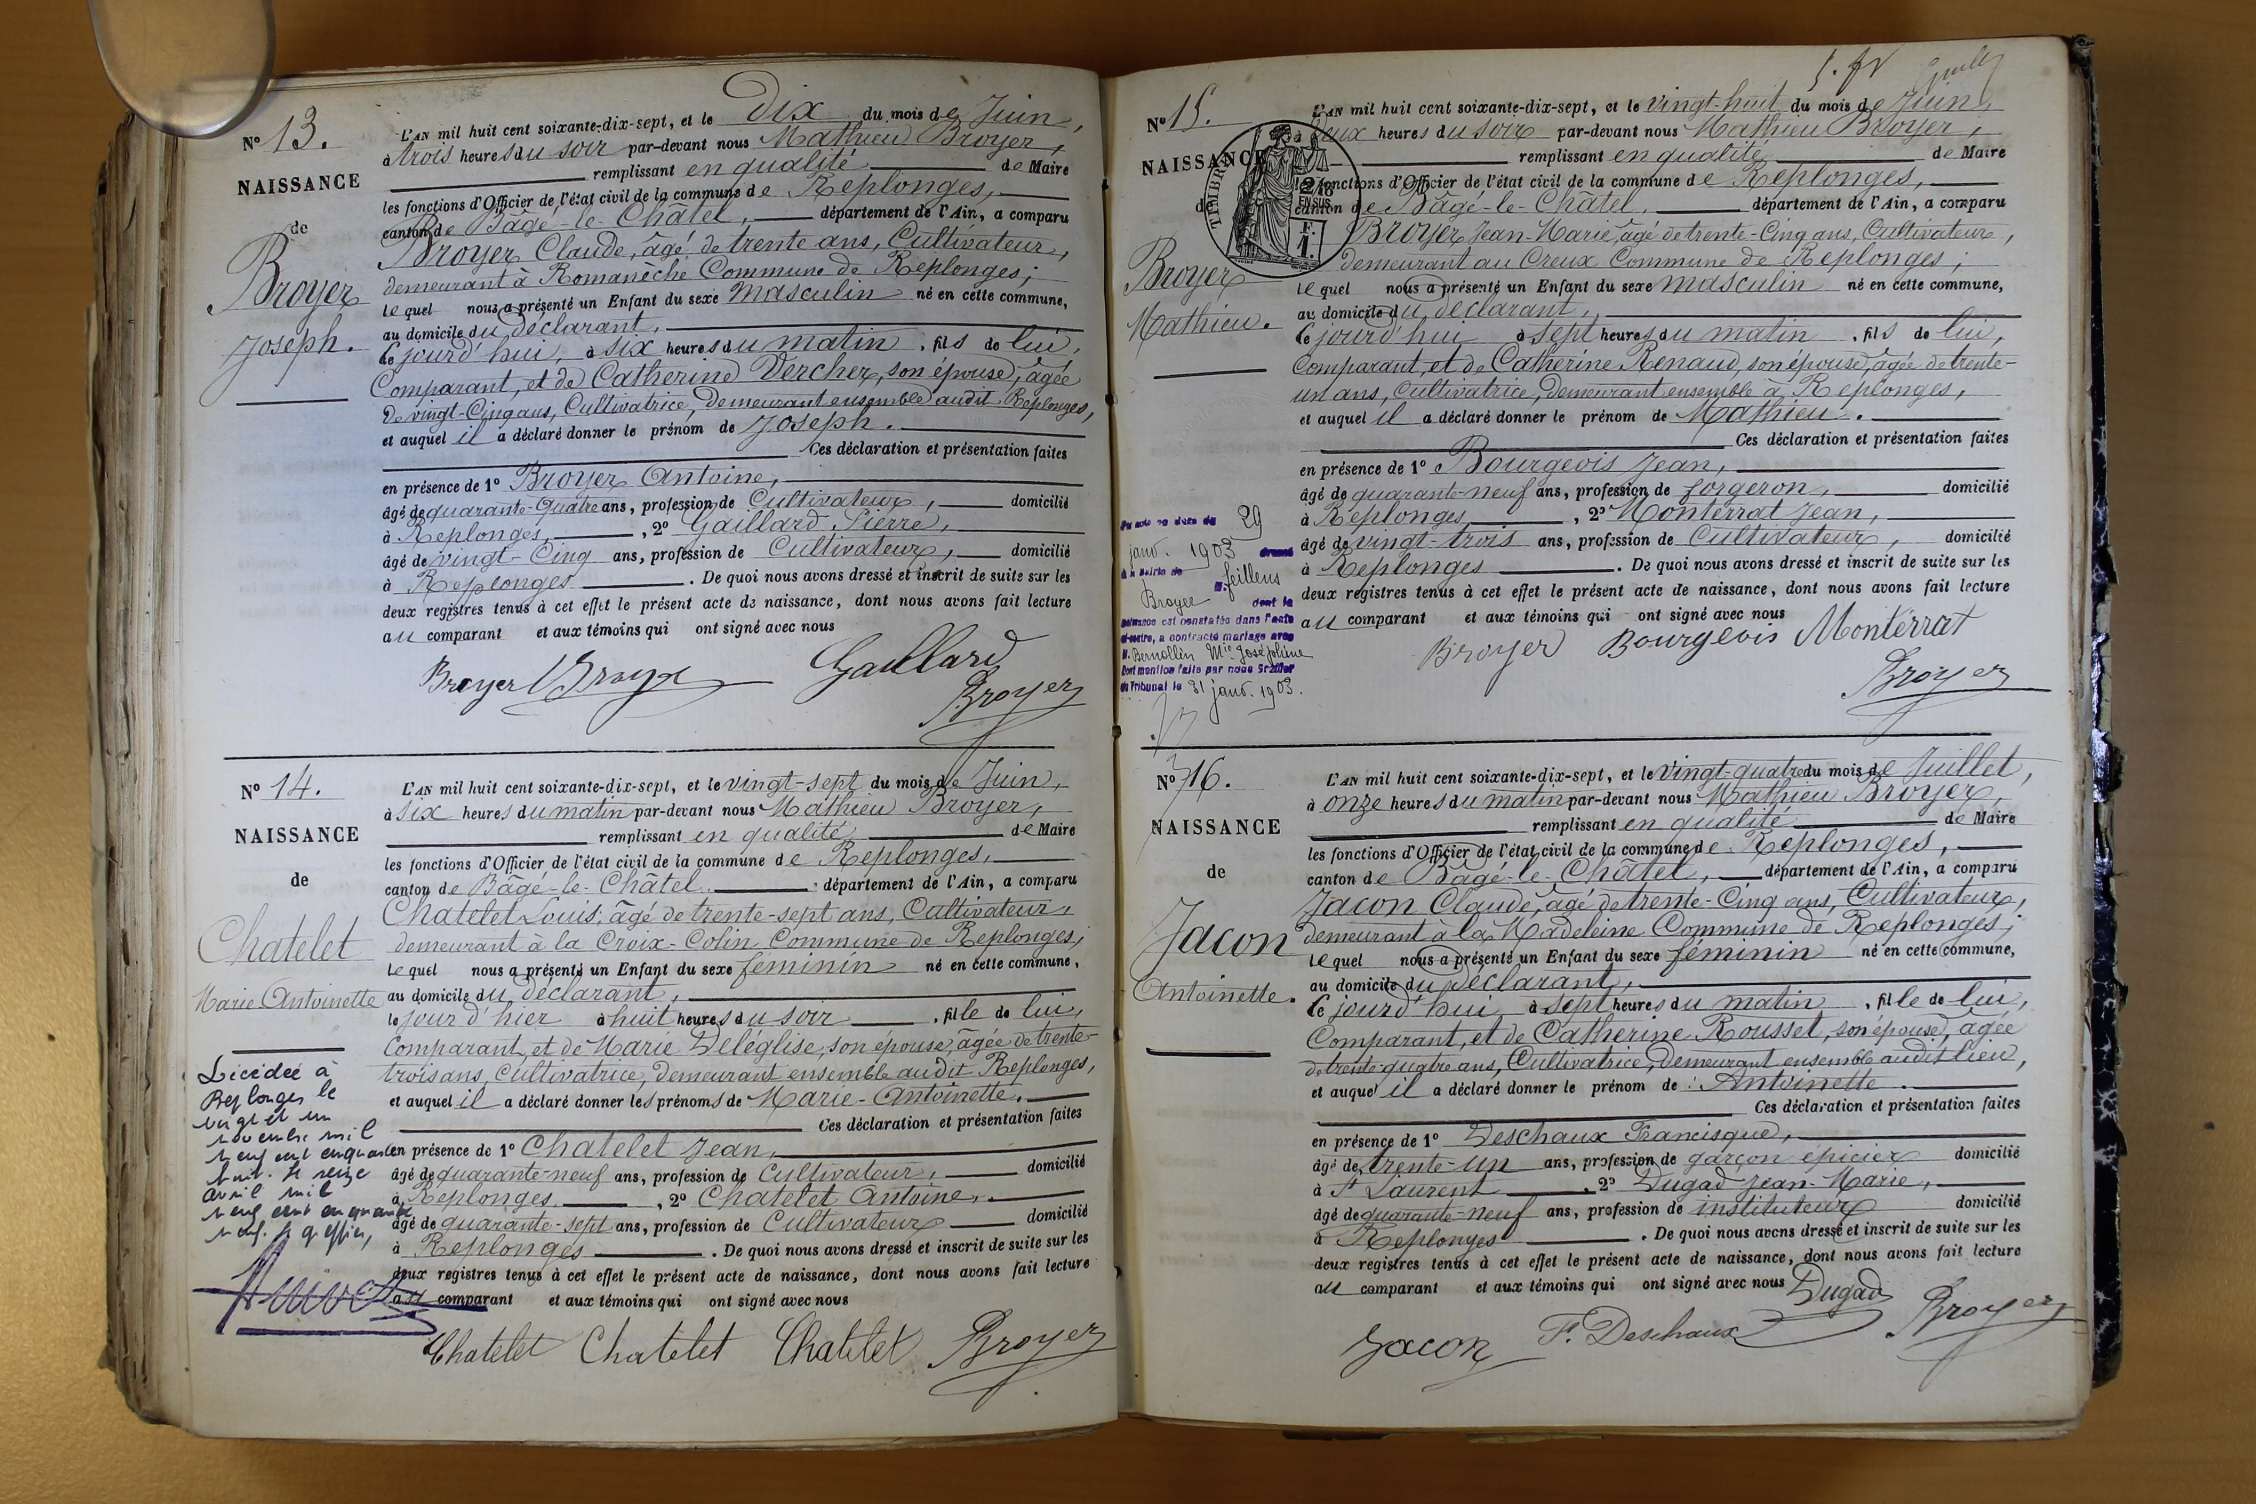 N° 13.
NAISSANCE
de
Broyer
Joseph.
L'AN mil huit cent soixante-dix-sept, et le Dix du mois de Juin,
à trois heures du soir par-devant nous Mathieu Broyer,
remplissant en qualité de Maire
les fonctions d'Officier de l'état civil de la commune de Replonges,
canton de Bâgé-le-Châtel, département de l'Ain, a comparu
Broyer Claude, âgé de trente ans, Cultivateur,
demeurant à Romanèche Commune de Replonges;
lequel nous a présenté un Enfant du sexe masculin né en cette commune,
au domicile du déclarant,
ce jourd'hui, à six heures du matin, fils de lui,
Comparant, et de Catherine Vercher, son épouse, âgée
de vingt-Cinq ans, Cultivatrice, demeurant ensemble audit Replonges,
et auquel il a déclaré donner le prénom de Joseph.
Ces déclaration et présentation faites
en présence de 1° Broyer Antoine,
âgé de quarante-Quatre ans, profession de Cultivateur, domicilié
à Replonges, 2° Gaillard Pierre,
âgé de vingt-Cinq ans, profession de Cultivateur, domicilié
à Replonges. De quoi nous avons dressé et inscrit de suite sur les
deux registres tenus à cet effet le présent acte de naissance, dont nous avons fait lecture
au comparant et aux témoins qui ont signé avec nous
Broyer Broye Gaillard
Broyer
N° 14.
NAISSANCE
de
Chatelet
Marie Antoinette
Décédée à
Replonges le
vingt et un
novembre mil
neuf cent cinquante
huit. Le seize
avril mil
neuf cent cinquante
neuf. Le greffier,
L'AN mil huit cent soixante-dix-sept, et le vingt-sept du mois de Juin,
à six heures du matin par-devant nous Mathieu Broyer,
remplissant en qualité de Maire
les fonctions d'Officier de l'état civil de la commune de Replonges,
canton de Bâgé-le-Châtel, département de l'Ain, a comparu
Chatelet Louis, âgé de trente-sept ans, Cultivateur,
demeurant à la Croix-Colin Commune de Replonges;
lequel nous a présenté un Enfant du sexe féminin né en cette commune,
au domicile du déclarant,
le jour d'hier à huit heures du soir, fille de lui,
Comparant, et de Marie Deléglise, son épouse, âgée de trente-
trois ans, Cultivatrice, demeurant ensemble audit Replonges,
et auquel il a déclaré donner les prénoms de Marie-Antoinette.
Ces déclaration et présentation faites
en présence de 1° Chatelet Jean,
âgé de quarante-neuf ans, profession de Cultivateur, domicilié
à Replonges, 2° Chatelet Antoine,
âgé de quarante-sept ans, profession de Cultivateur domicilié
à Replonges. De quoi nous avons dressé et inscrit de suite sur les
deux registres tenus à cet effet le présent acte de naissance, dont nous avons fait lecture
au comparant et aux témoins qui ont signé avec nous
Chatelet Chatelet Chatelet Broyer
N° 15.
NAISSANCE
de
Broyer
Mathieu.
TIMBRE
2/10
EN SUS
1 F.
Par acte en date du 29
janv. 1903 dressé
à la mairie de Feillens
M. Broyer dont la
naissance est constatée dans l'acte
ci-contre, a contracté mariage avec
M. Bernollin Mie Joséphine
Dont mention faite par nous Greffier
du Tribunal le 31 janv. 1903.
L'AN mil huit cent soixante-dix-sept, et le vingt-huit du mois de Juin,
à deux heures du soir par-devant nous Mathieu Broyer,
remplissant en qualité de Maire
les fonctions d'Officier de l'état civil de la commune de Replonges,
canton de Bâgé-le-Châtel, département de l'Ain, a comparu
Broyer Jean-Marie, âgé de trente-Cinq ans, Cultivateur,
demeurant au Creux Commune de Replonges;
lequel nous a présenté un Enfant du sexe masculin né en cette commune,
au domicile du déclarant,
ce jourd'hui à sept heures du matin, fils de lui,
Comparant, et de Catherine Renaud, son épouse, âgée de trente-
un ans, Cultivatrice, demeurant ensemble à Replonges,
et auquel il a déclaré donner le prénom de Mathieu.
Ces déclaration et présentation faites
en présence de 1° Bourgeois Jean,
âgé de quarante-neuf ans, profession de forgeron, domicilié
à Replonges, 2° Monterrat Jean,
âgé de vingt-trois ans, profession de Cultivateur, domicilié
à Replonges. De quoi nous avons dressé et inscrit de suite sur les
deux registres tenus à cet effet le présent acte de naissance, dont nous avons fait lecture
au comparant et aux témoins qui ont signé avec nous
Broyer Bourgeois Monterrat
Broyer
N° 16.
NAISSANCE
de
Jacon
Antoinette.
L'AN mil huit cent soixante-dix-sept, et le vingt-quatre du mois de Juillet,
à onze heures du matin par-devant nous Mathieu Broyer,
remplissant en qualité de Maire
les fonctions d'Officier de l'état civil de la commune de Replonges,
canton de Bâgé-le-Châtel, département de l'Ain, a comparu
Jacon Claude, âgé de trente-Cinq ans, Cultivateur,
demeurant à la Madeleine Commune de Replonges;
lequel nous a présenté un Enfant du sexe féminin né en cette commune,
au domicile du déclarant,
ce jourd'hui à sept heures du matin, fille de lui,
Comparant, et de Catherine Rousset, son épouse, âgée
de trente-quatre ans, Cultivatrice, demeurant ensemble audit lieu,
et auquel il a déclaré donner le prénom de Antoinette.
Ces déclaration et présentation faites
en présence de 1° Deschaux Francisque,
âgé de trente-un ans, profession de garçon épicier domicilié
à St Laurent, 2° Dugad Jean-Marie,
âgé de quarante-neuf ans, profession de instituteur domicilié
à Replonges. De quoi nous avons dressé et inscrit de suite sur les
deux registres tenus à cet effet le présent acte de naissance, dont nous avons fait lecture
au comparant et aux témoins qui ont signé avec nous Dugad
Jacon F. Deschaux Broyer